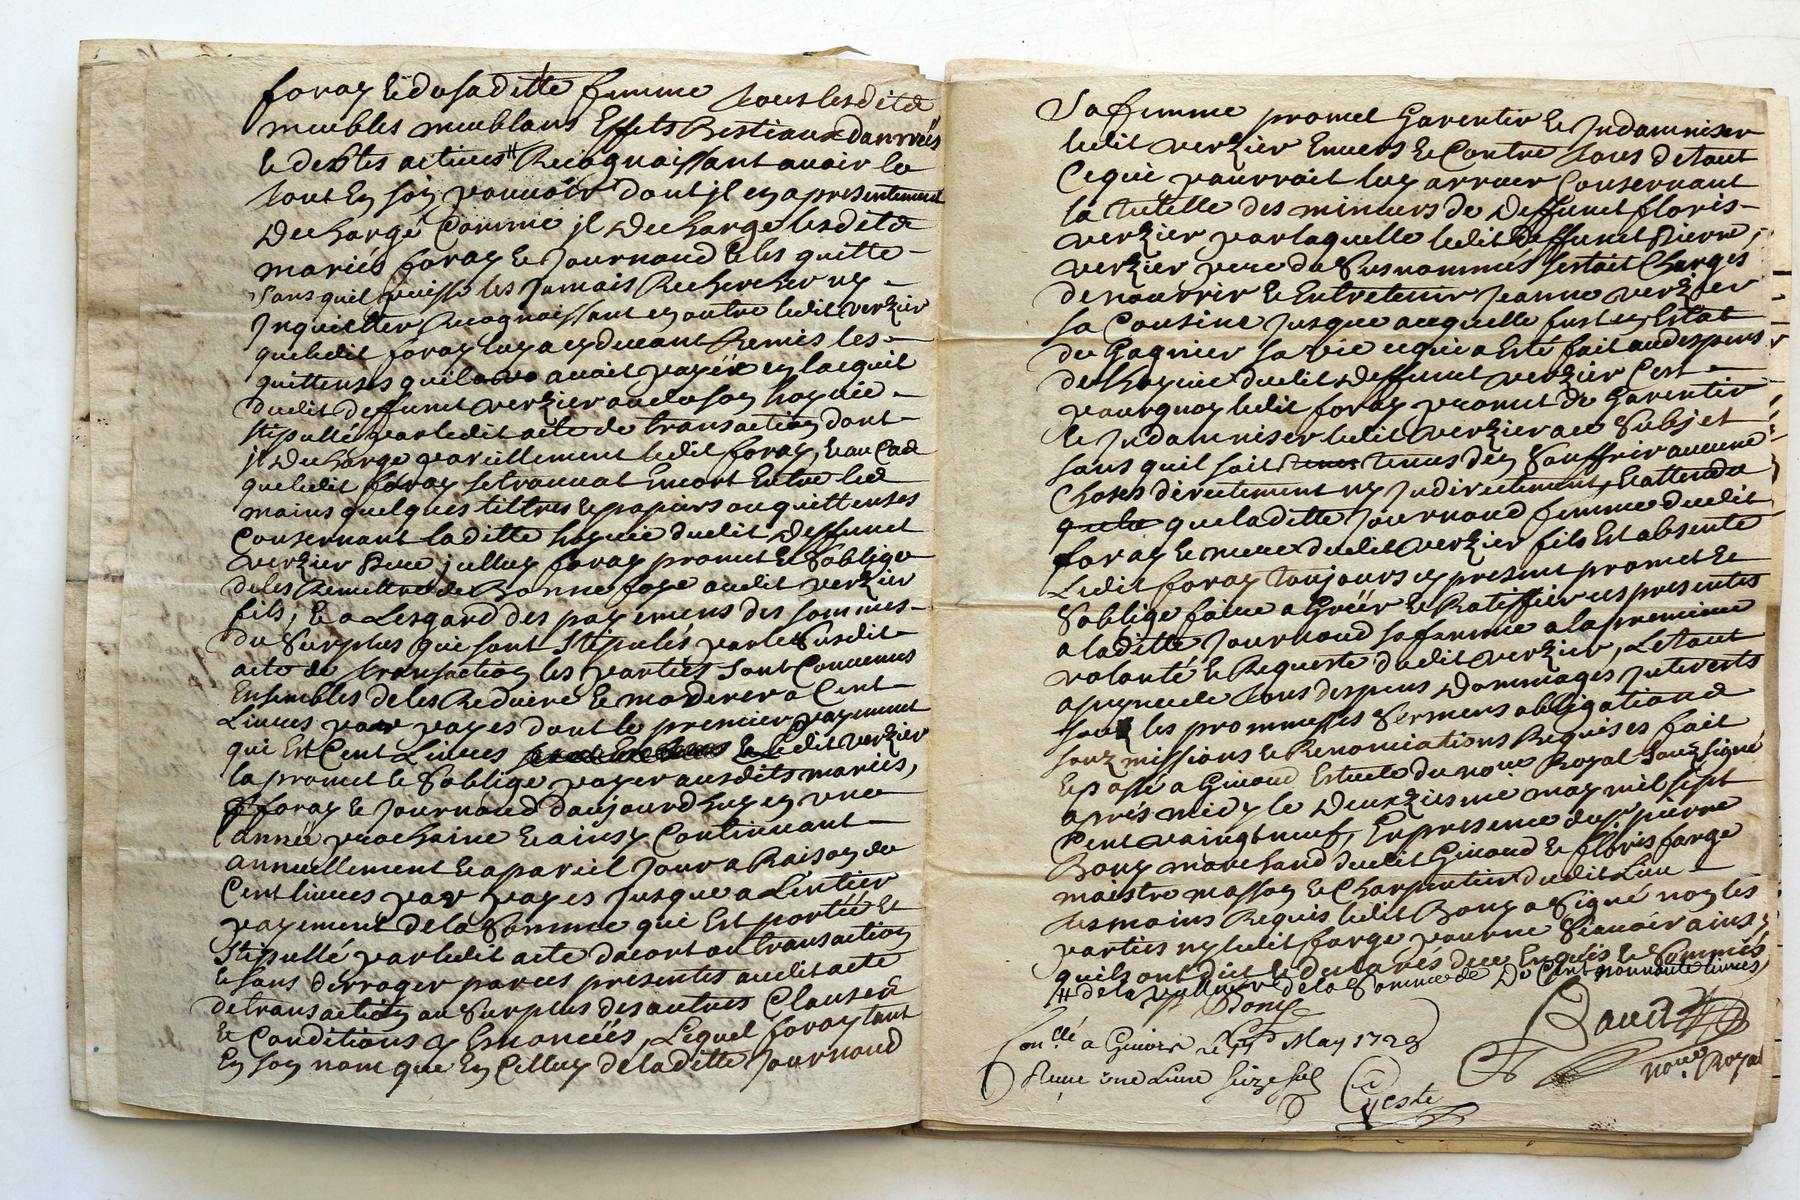 foray & de sa ditte femme tous lesdits
meubles meublans Effets Bestiaux danrrées
& debtes actives # Recognaissant avoir le
tout En son pouvoir dont jl en a presentement
Dechargé Comme jl Decharge lesdits
mariés foray & Journoud & les quitte
sans quil puisse les Jamais Rechercher ny
Jnquietter Recognaissant en outre ledit verzier
que ledit foray luy a cy devant Remis les
quittenses quil avait payéé en lacquit
dudit deffunct verzier ou de son hoyrie
stipullé par ledit acte de transaction dont
jl Decharge pareillement ledit foray, & au Cas
que ledit foray se trouvat Encort Entre les
mains quelques tiltres & papiers ou quittenses
Consernant laditte hoyrie dudit Deffunct
verzier Pere jcelluy foray promet & soblige
de les Remettre de Bonne foye audit verzier
fils, & a Lesgard des payemens des sommes
du Surplus qui sont Stipulés par le Susdit
acte de transaction les parties sont Convenus
Ensembles de les Reduire & moderer a Cent
Livres par payes dont le premier payement
qui Est Cent Livres ledit verzier
la promet & soblige payer ausdits mariés,
foray & Journoud daujourdhuy en une
année prochaine & ainsy Continuant
annuellement & a pareil Jour a Raison de
Cent livres par payes Jusque a Lentier
payement de la Somme qui Est portée et
Stipullé par ledit acte dacort ou transaction
& sans derroger par ces presentes audit acte
de transaction au Surplus des autres Clauses
& Conditions y Enoncéés, Lequel foray tant
En son nom que En Celluy de laditte Journoud
Sa femme promet Garentir & Jndamniser
ledit verzier Envers & Contre tous de tout
Ce qui pourroit luy arriver Consernant
la tutelle des mineurs de Deffunct floris
verzier par laquelle ledit Deffunct Pierre
verzier pere du Susnommés sertait Charges
de nourrir & Entretenir Jeanne verzier
sa Cousine Jusque a ce quelle fust en Estat
de Gagnier sa vie ce qui a Esté fait au despens
de lhoyrie dudit Deffunct verzier Cest
pourquoy ledit foray promet de Garentir
& Jndamniser ledit verzier au Subjet
sans quil soit tenus den Souffrir aucune
Choses directement ny Jndirectement, & attendu
que laditte Journoud femme dudit
foray & mere dudit verzier fils Est absente
Ledit foray toujours cy present promet &
Soblige faire a Gréér & Ratiffier ces presentes
a laditte Journoud sa famme a la premiere
volonté & Requeste dudit verzier, Le tout
a peyne de tous despens Dommages Jnterests
sous les prommesses Sermens obligations
souz missions & Renonciations Requises fait
& passé a Estude du nore Royal souzsigné
aprés midy le Deuxziesme may mil sept
Cent vaingt neuf, En presence de sr pierre
Bony marchand dudit & floris farge
maistre masson & Charpentier dudit Lieu
tesmoins Requis ledit Bony a Signé non les
parties ny ledit farge pour ne Scavoir ainsy
quils ont dit & declarés de ce Enquis & Sommés
# de la valleur de la Somme de De Cent nonnante livres
Bony
Conllé a le May 1729
Receu une Livre Seize sols
nore Royal